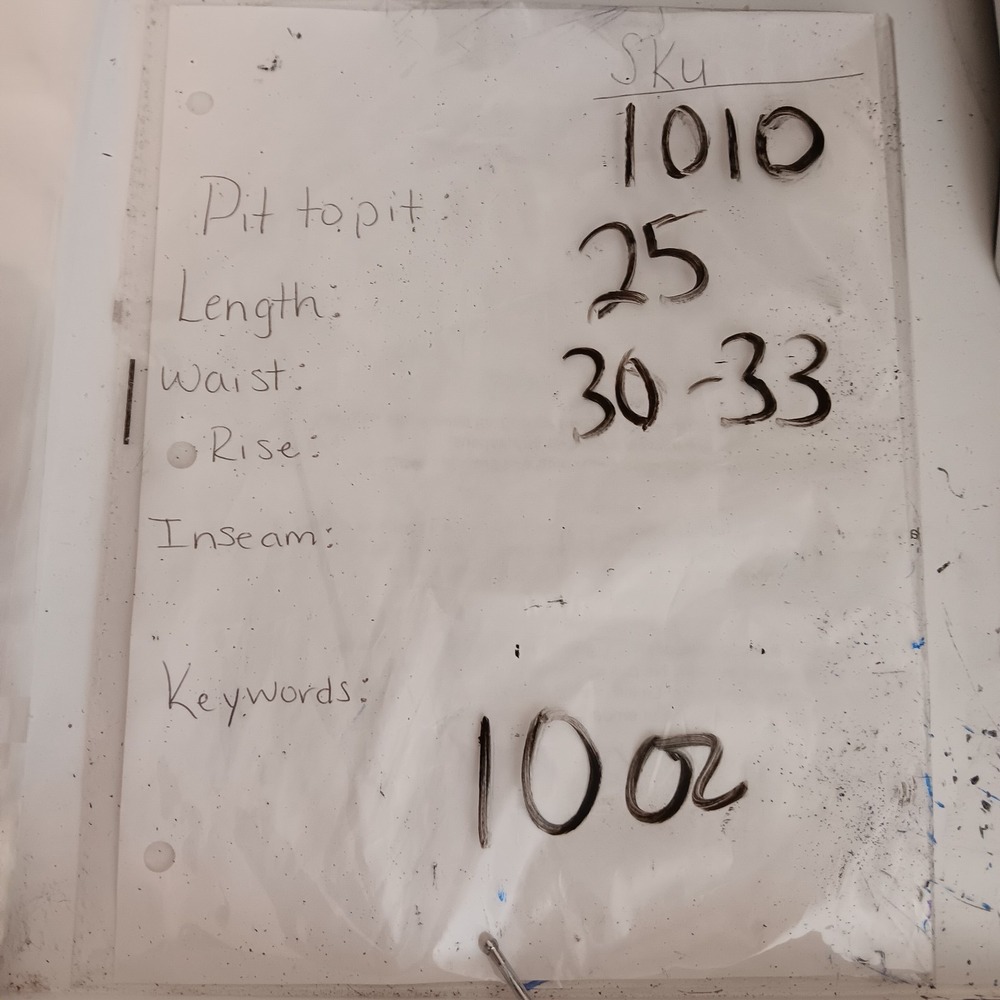 SKu
1010
Pit to pit:
25
Length:
Waist: 30-33
Rise:
Inseam:
Keywords:
10 oz